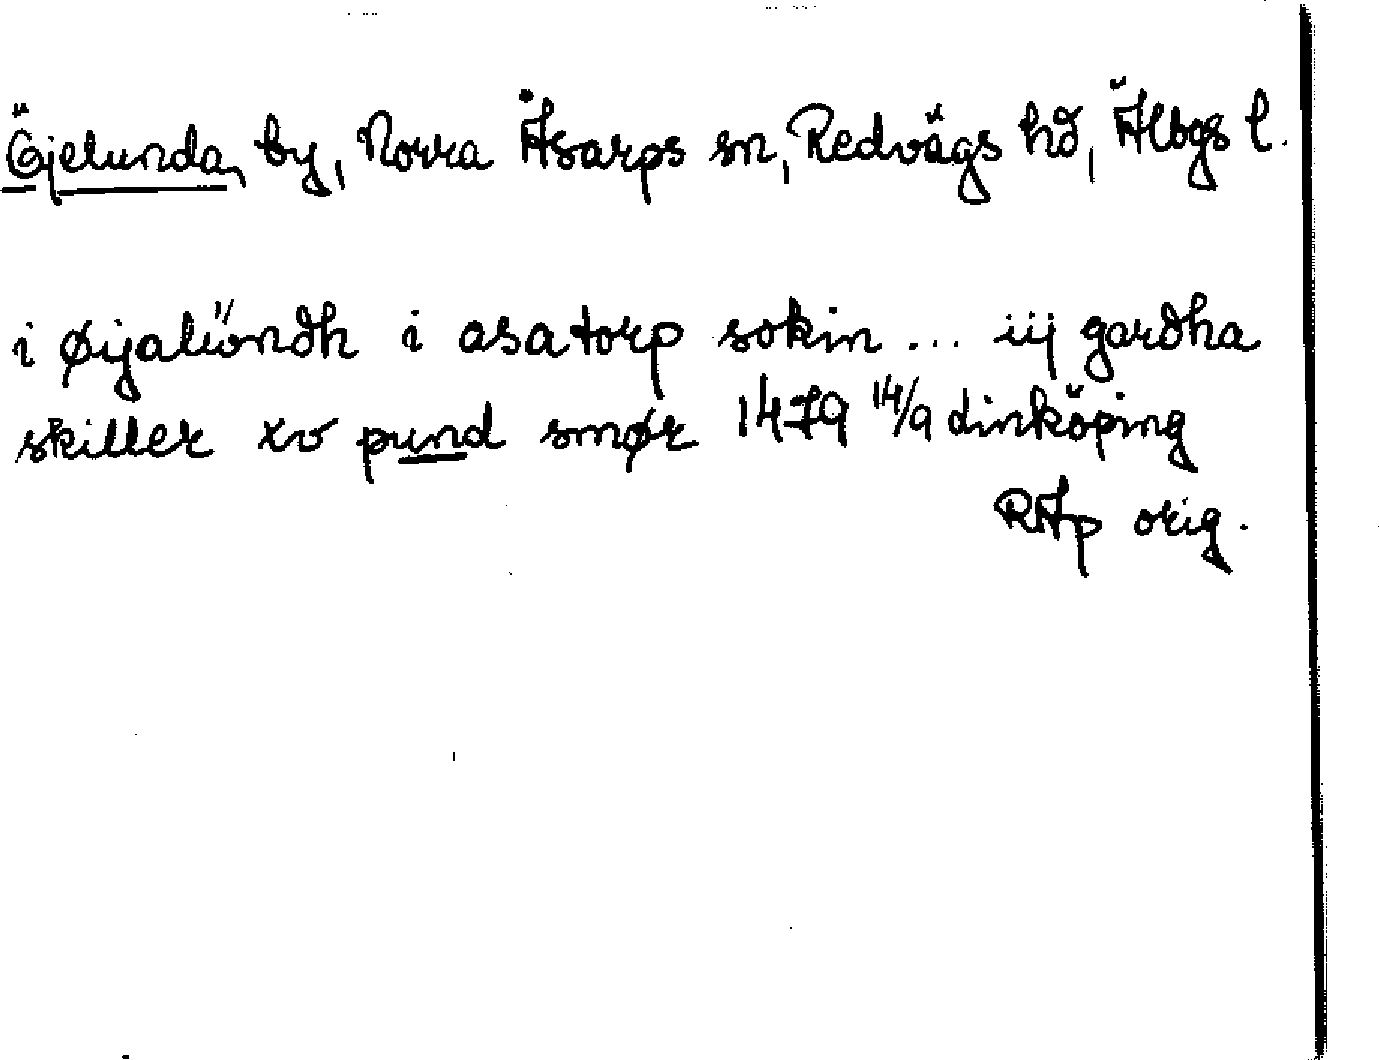 Öjelunda, by, Norra Åsarps sn, Redvägs hd, Älvgs l.
i øijalwndh i asatorp sokin ... iij gardha
skiller xv pund smør 1479 14/9 Linköping
RAp orig.